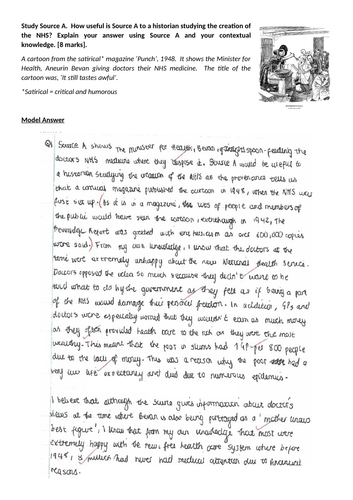 Study Source A. How useful is Source A to a historian studying the creation of
the NHS? Explain your answer using Source A and your contextual
knowledge. [8 marks].
A cartoon from the satirical* magazine 'Punch', 1948. It shows the Minister for
Health, Aneurin Bevan giving doctors their NHS medicine. The title of the
cartoon was, 'It still tastes awful'.
*Satirical = critical and humorous
Model Answer
Source A shows the minister for Health, Bevan, spoon-feeding the
doctors NHS medicine where they despise it. Source A would be useful to
a historian studying the creation of the NHS as the provenance tells us
that a comical magazine published the cartoon in 1948, when the NHS was
first set up. As it is in a magazine, lots of people and members of
the public would have seen the cartoon, although in 1942, the
Beveridge Report was greeted with enthusiasm as over 600,000 copies
were sold. From my own knowledge, I know that the doctors at the
time were extremely unhappy about the new National Health Service.
Doctors opposed the idea so much because they didn't want to be
told what to do by the government as they felt as if being a part
of the NHS would damage their personal freedom. In addition, GPs and
doctors were especially worried that they wouldn't earn as much money
as they often provided health care to the rich as they were the most
wealthy. This meant that the poor in slums had 1 GP per 800 people
due to the lack of money. This was a reason why the poor had a
very low life expectancy and died due to numerous epidemics.
I believe that although the source gives information about doctor's
views at the time where Bevan is also being portrayed as a 'mother knows
best figure', I know that from my own knowledge that most were
extremely happy with the new, free health care system where before
1948, much had never had medical attention due to financial
reasons.